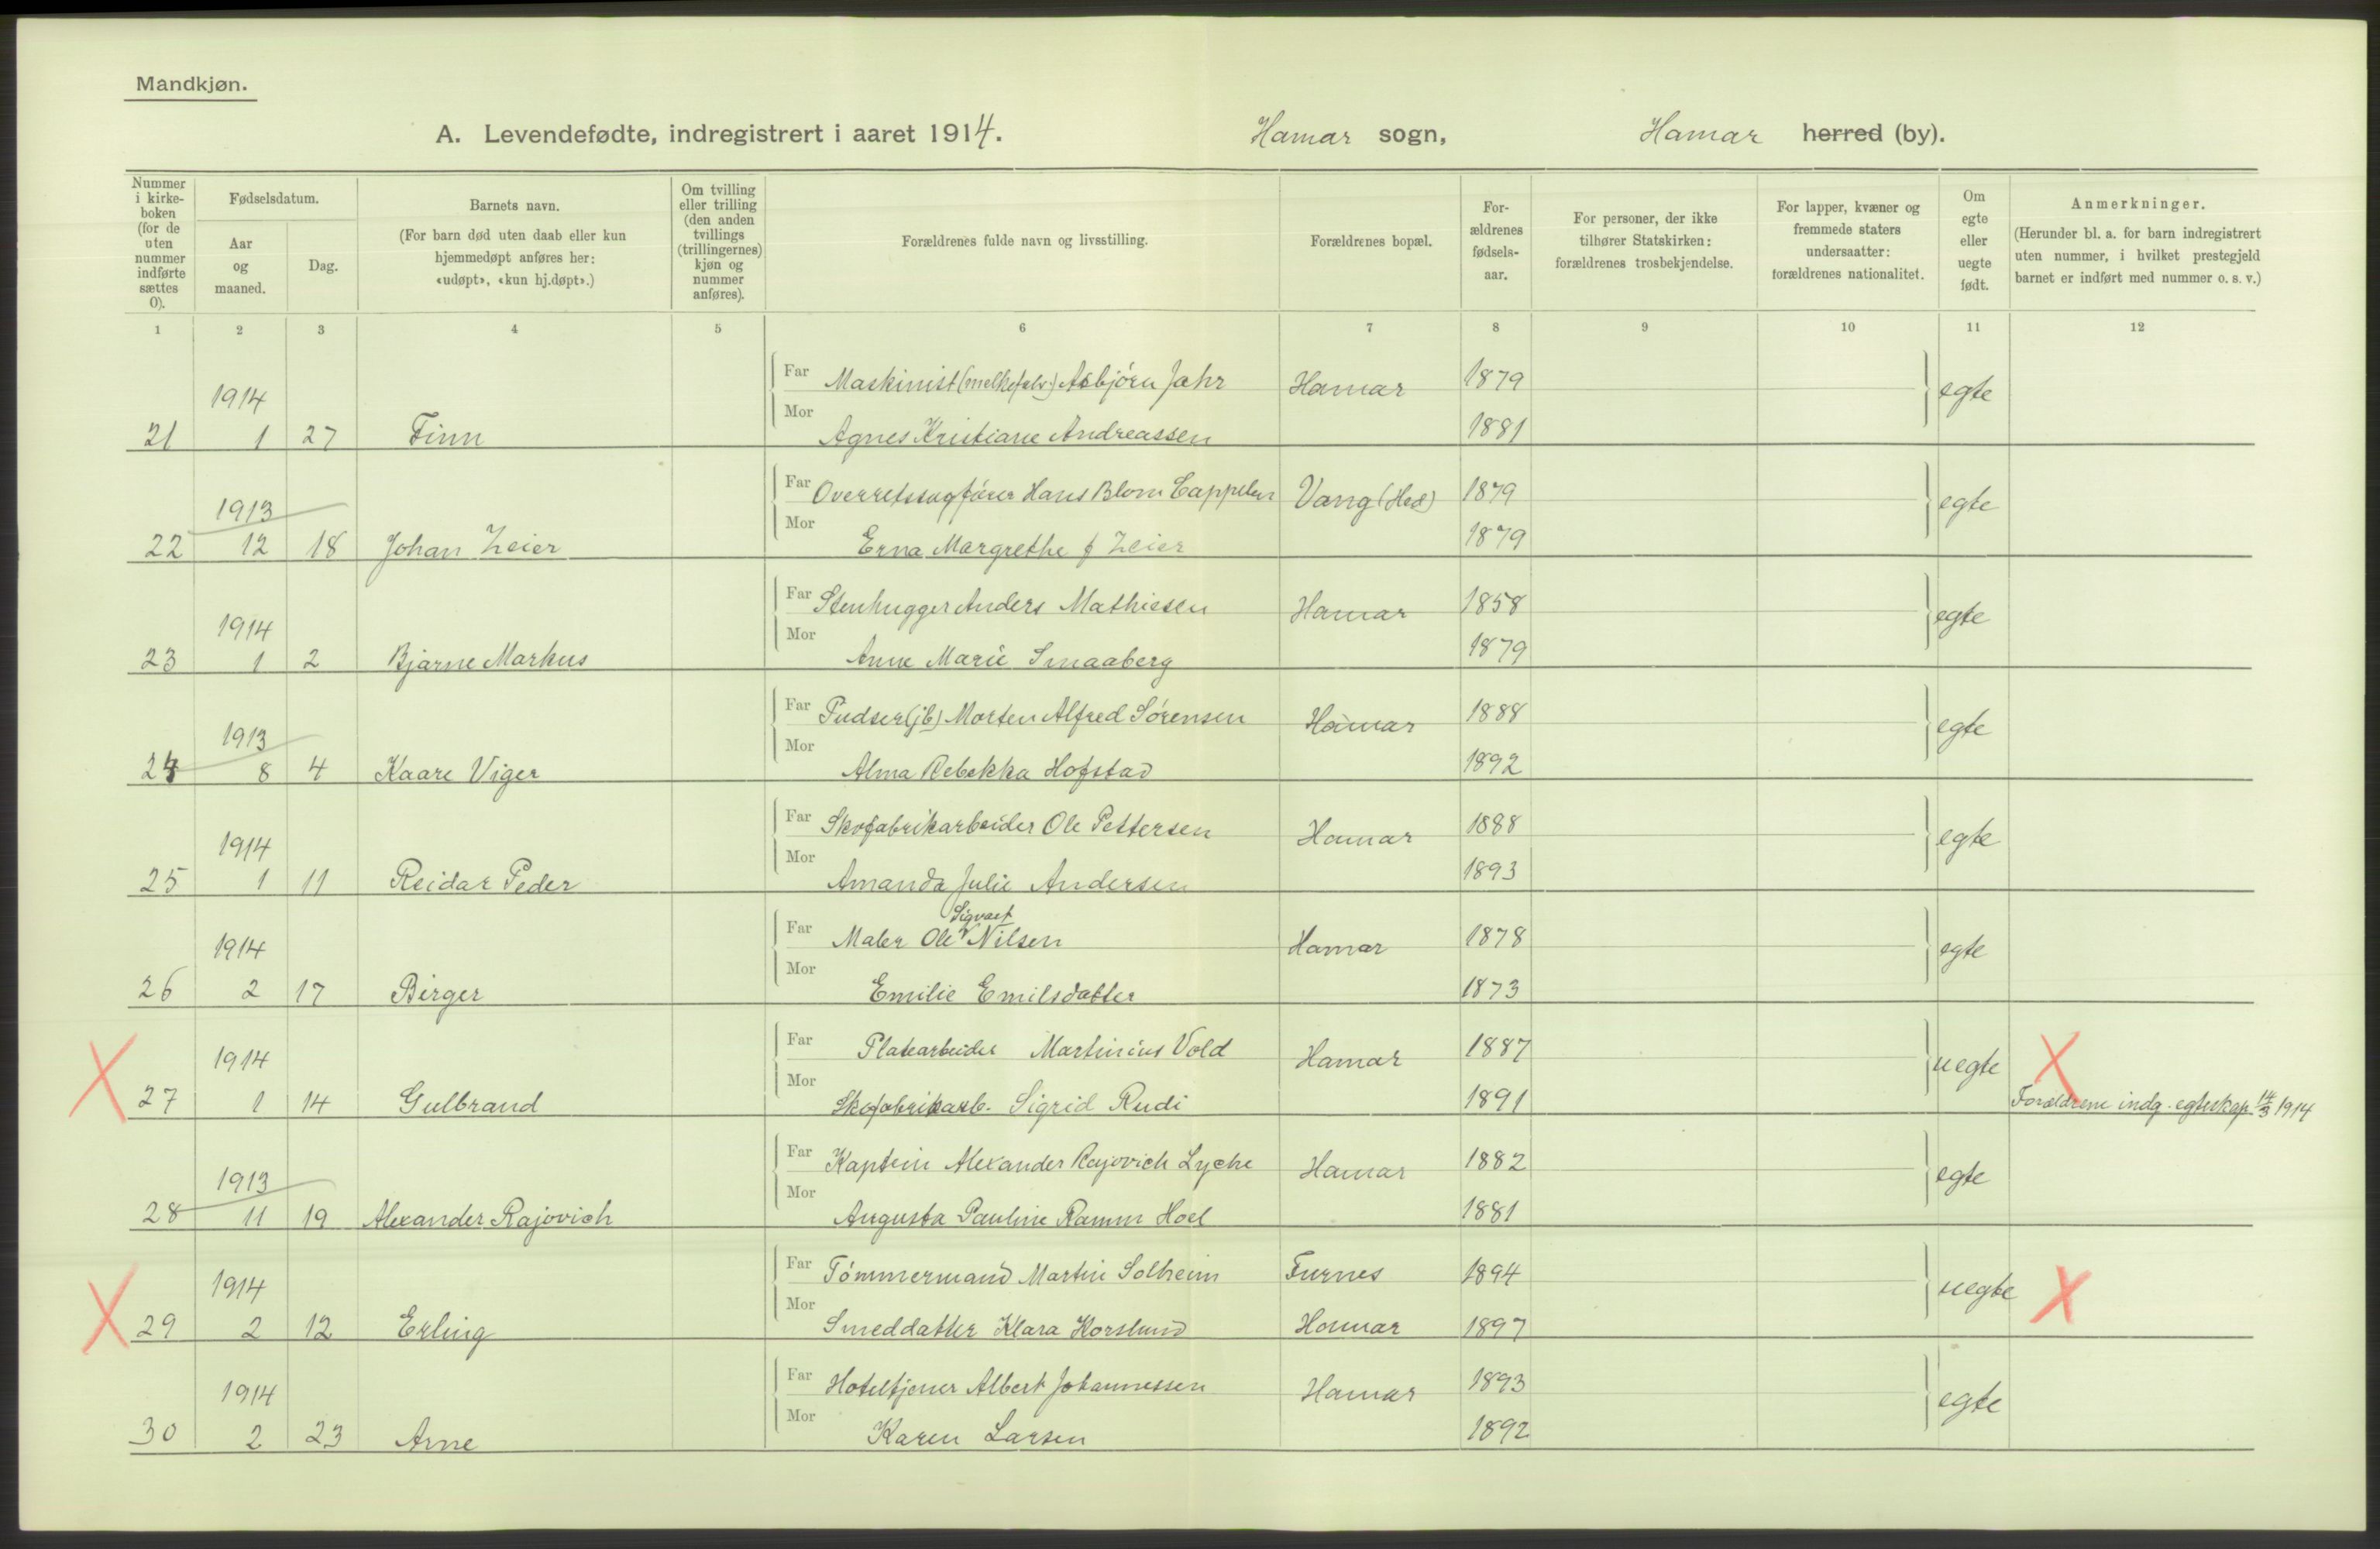 Mandkjøn.
A. Levendefødte, indregistrert i aaret 1914. Hamar sogn, Hamar herred (by).
Nummer i kirke- boken (for de uten nummer indførte sættes 0).
Fødselsdatum.
Aar og maaned.
Dag.
Barnets navn.
(For barn død uten daab eller kun hjemmedøpt anføres her: «udøpt», «kun hj.døpt».)
Om tvilling eller trilling (den anden tvillings (trillingernes) kjøn og nummer anføres).
Forældrenes fulde navn og livsstilling.
Forældrenes bopæl.
For- ældrenes fødsels- aar.
For personer, der ikke tilhører Statskirken: forældrenes trosbekjendelse.
For lapper, kvæner og fremmede staters undersaatter: forældrenes nationalitet.
Om egte eller uegte født.
Anmerkninger.
(Herunder bl. a. for barn indregistrert uten nummer, i hvilket prestegjeld barnet er indført med nummer o. s. v.)
1 2 3 4 5 6 7 8 9 10 11 12
1914 Far Maskinist (melkefalv.) Asbjørn Jahr Hamar 1879 egte
21 1 27 Finn Mor Agnes Kristiane Andreassen 1881
1913 Far Overretssagfører Hans Blom Cappelen Vang (Hed) 1879 egte
22 12 18 Johan Zeier Mor Erna Margrethe f Zeier 1879
1914 Far Stenhugger Anders Mathiesen Hamar 1858 egte
23 1 2 Bjarne Markus Mor Anne Marie Smaaberg 1879
1913 Far Pudser (jb) Morten Alfred Sørensen Hamar 1888 egte
24 8 4 Kaare Viger Mor Alma Rebekka Hofstad 1892
1914 Far Skofabrikarbeider Ole Pettersen Hamar 1888 egte
25 1 11 Reidar Peder Mor Amanda Julie Andersen 1893
1914 Far Maler Ole Sigvart Nilsen Hamar 1878 egte
26 2 17 Birger Mor Emilie Emilsdatter 1873
1914 Far Platearbeider Martinius Vold Hamar 1887 uegte X
X 27 1 14 Gulbrand Mor Skofabrikarb. Sigrid Rudi 1891 Forældrene indg. egteskap 14/3 1914
1913 Far Kaptein Alexander Rajovich Lyche Hamar 1882 egte
28 11 19 Alexander Rajovich Mor Augusta Pauline Ramm Hoel 1881
1914 Far Tømmermand Martin Solheim Furnes 1894 uegte X
X 29 2 12 Erling Mor Smeddatter Klara Horslund Hamar 1897
1914 Far Hoteltjener Albert Johannessen Hamar 1893 egte
30 2 23 Arne Mor Karen Larsen 1892